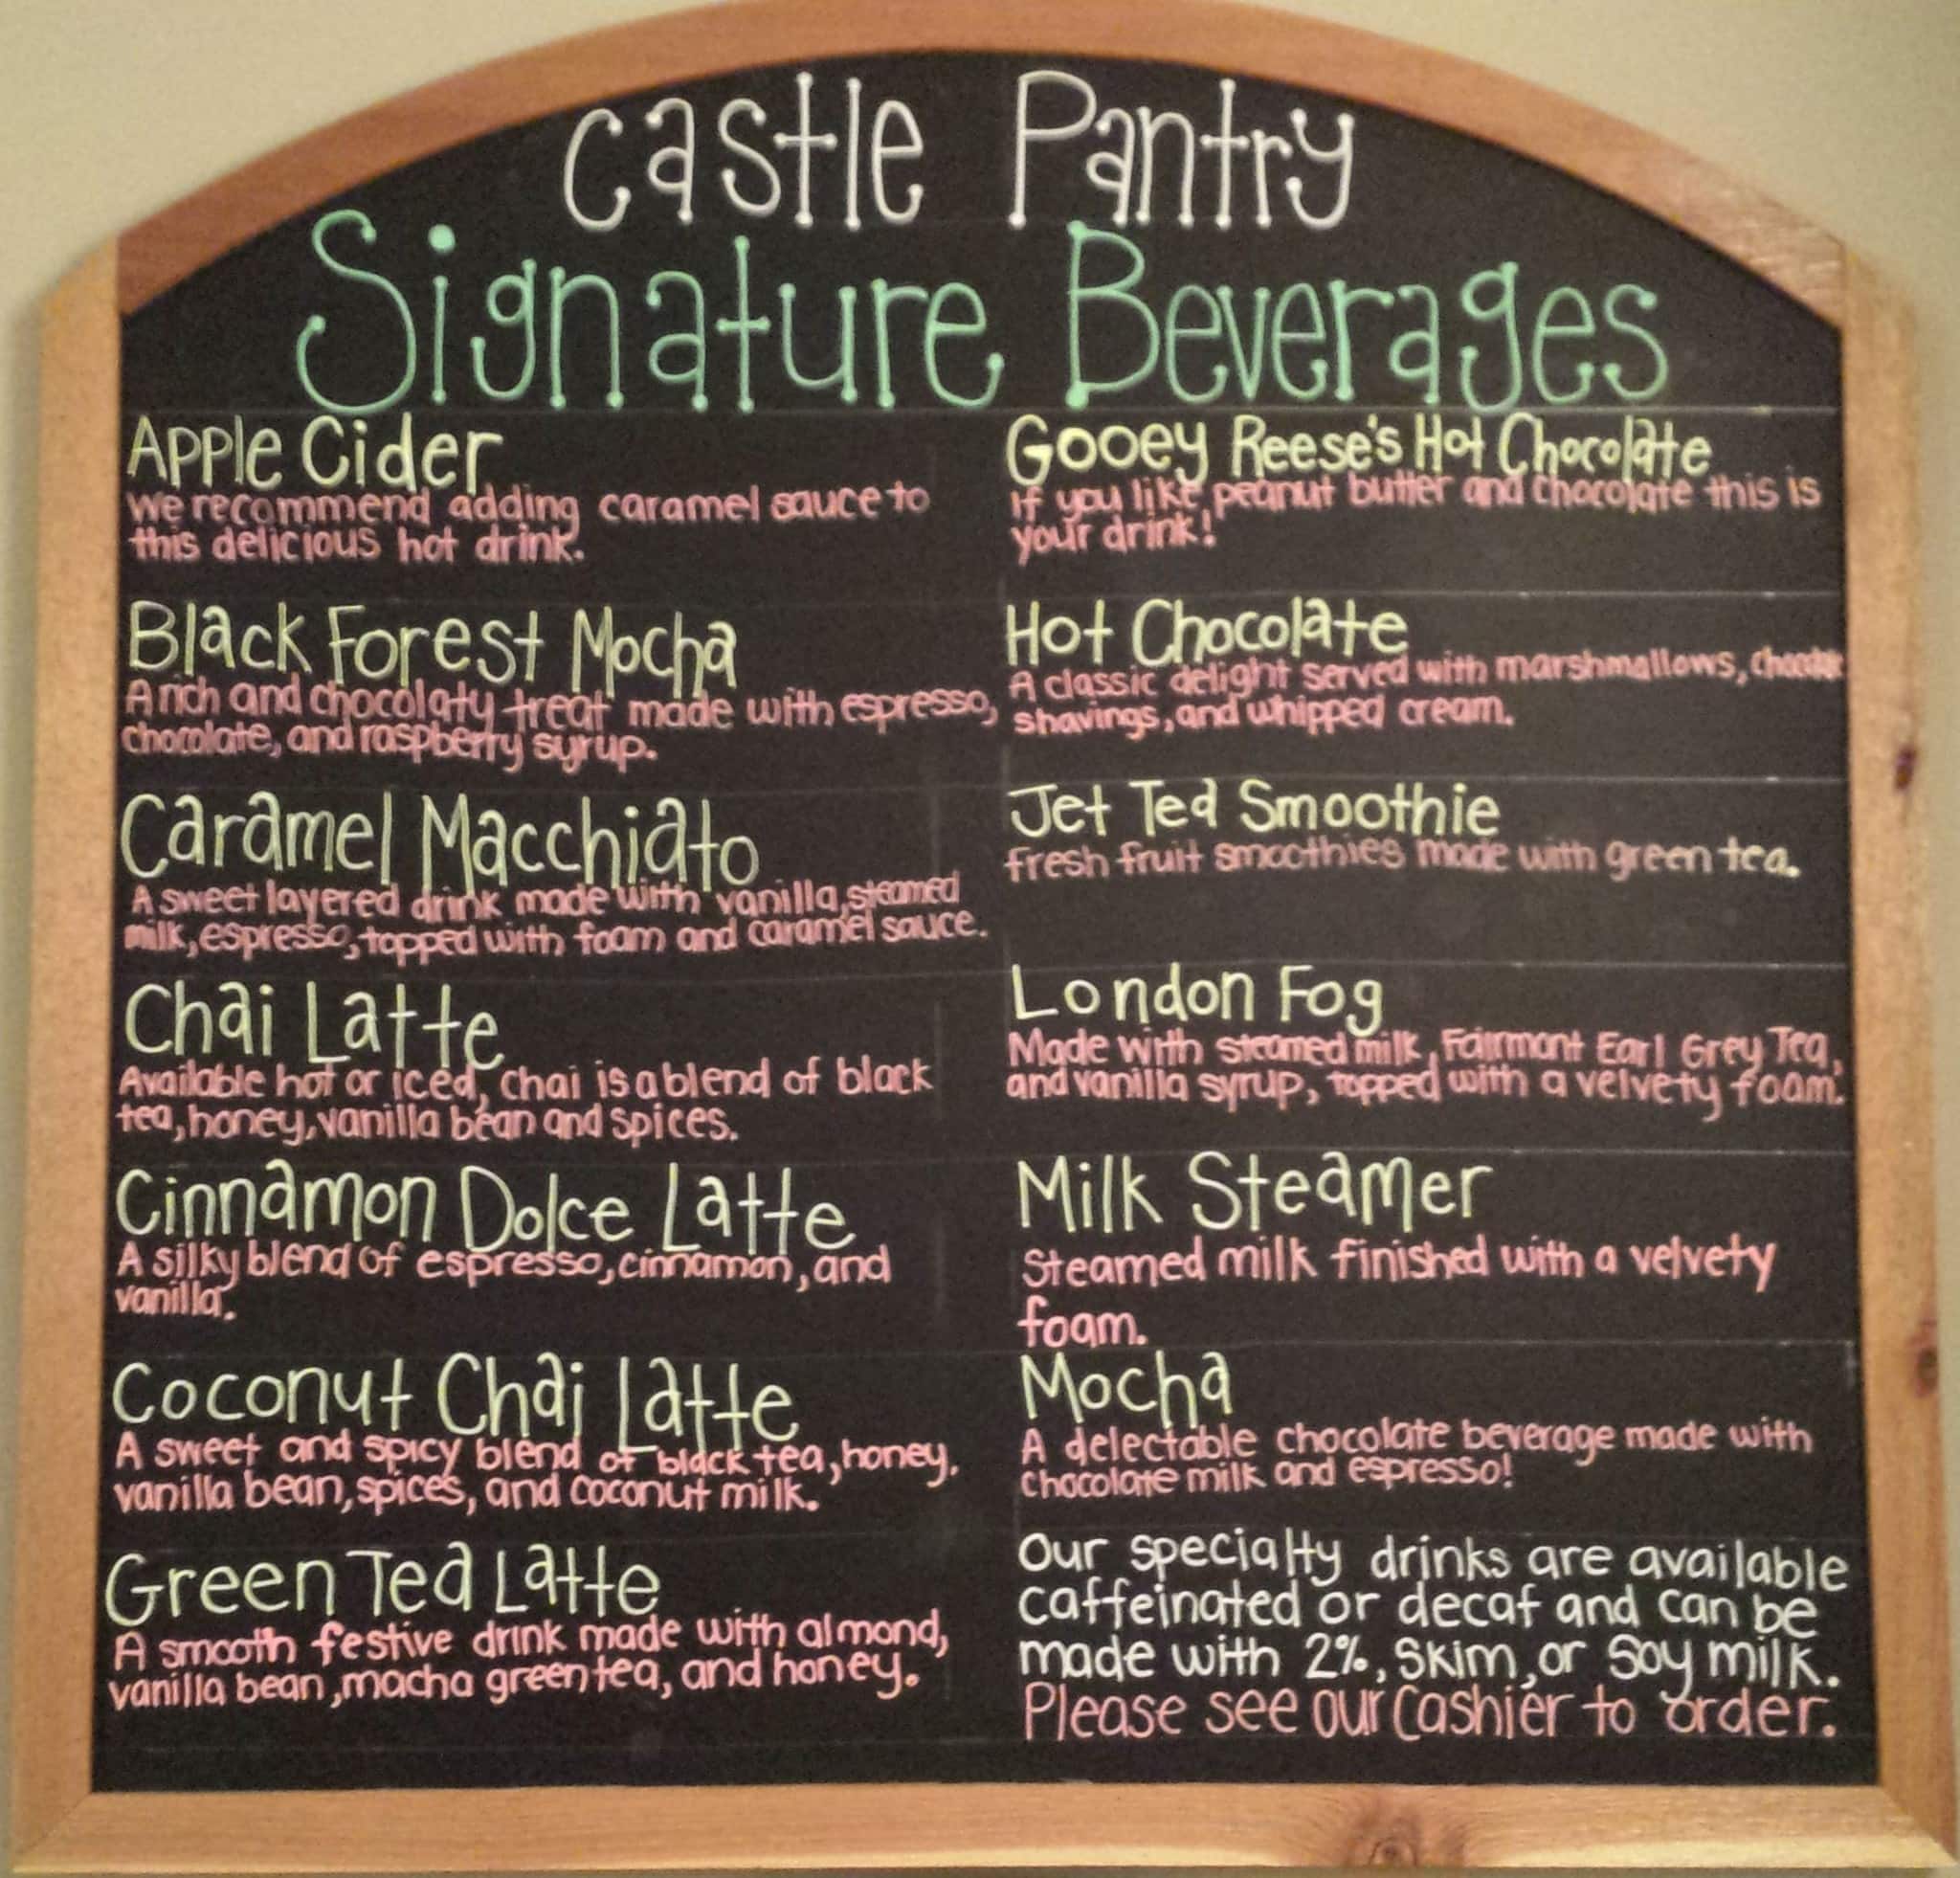 Castle Pantry
Signature Beverages
Apple Cider
We recommend adding caramel sauce to
this delicious hot drink.
Black Forest Mocha
A rich and chocolaty treat made with espresso,
chocolate, and raspberry syrup.
Caramel Macchiato
A sweet layered drink made with vanilla, steamed
milk, espresso, topped with foam and caramel sauce.
Chai Latte
Available hot or iced, chai is a blend of black
tea, honey, vanilla bean and spices.
Cinnamon Dolce Latte
A silky blend of espresso, cinnamon, and
vanilla.
Coconut Chai Latte
A sweet and spicy blend of black tea, honey,
vanilla bean, spices, and coconut milk.
Green Tea Latte
A smooth festive drink made with almond,
vanilla bean, macha green tea, and honey.
Gooey Reese's Hot Chocolate
If you like peanut butter and chocolate this is
your drink!
Hot Chocolate
A classic delight served with marshmallows, chocolate
shavings, and whipped cream.
Jet Tea Smoothie
Fresh fruit smoothies made with green tea.
London Fog
Made with steamed milk, Fairmont Earl Grey Tea,
and vanilla syrup, topped with a velvety foam.
Milk Steamer
Steamed milk finished with a velvety
foam.
Mocha
A delectable chocolate beverage made with
chocolate milk and espresso!
Our specialty drinks are available
caffeinated or decaf and can be
made with 2%, Skim, or Soy milk.
Please see our cashier to order.